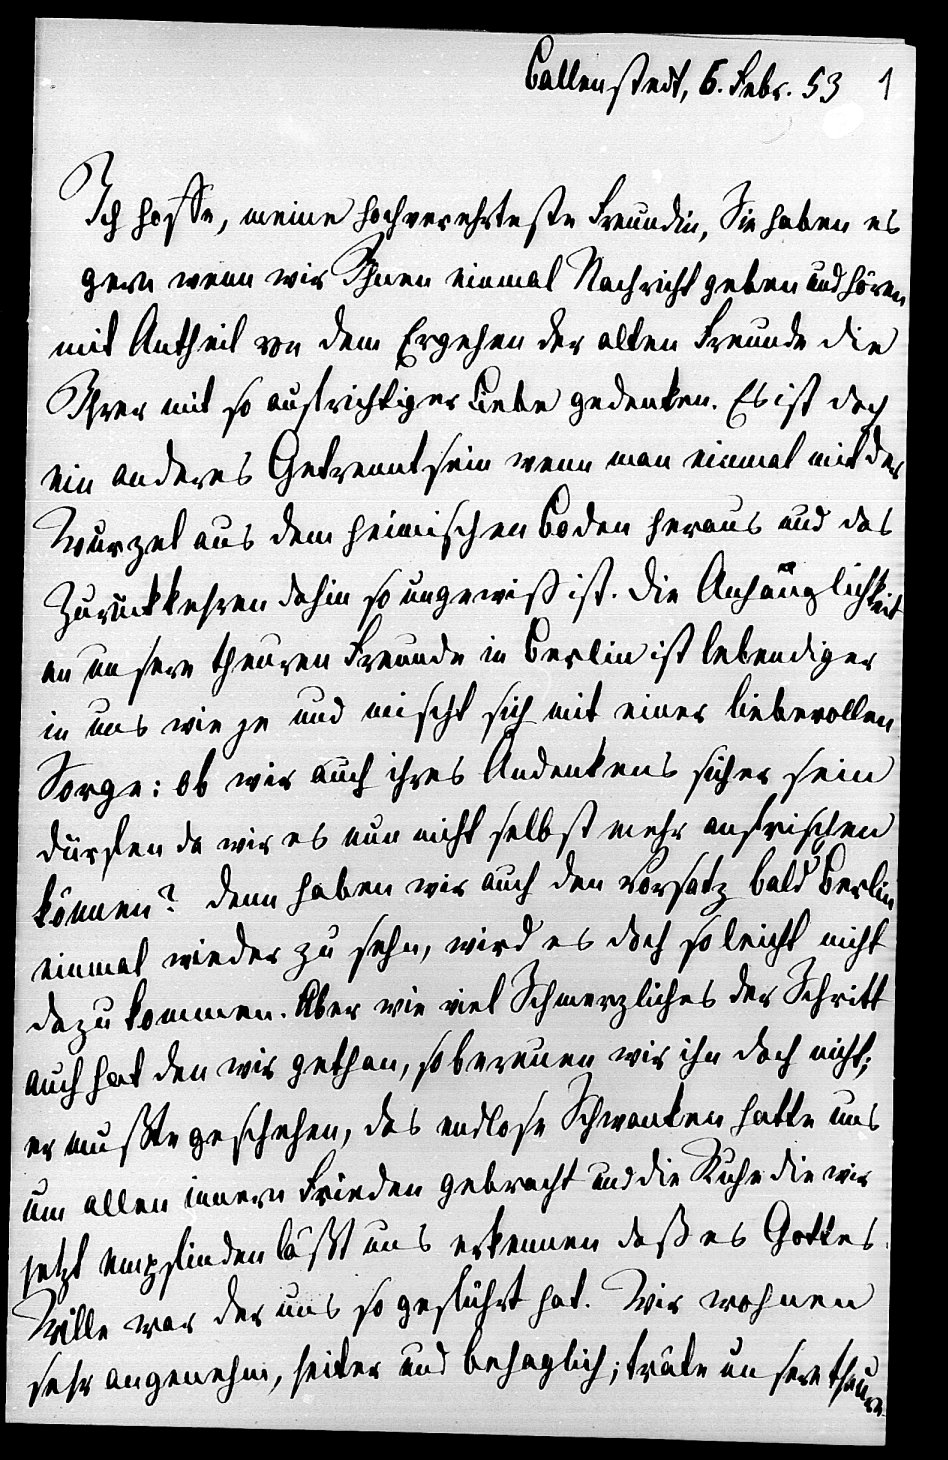 Ballenstedt, 6. Febr. 53 1
Ich hoffe, meine hochverehrteste Freundin, Sie haben es
gern wenn wir Ihnen einmal Nachricht geben und hören
mit Antheil von dem Ergehen der alten Freunde die
Ihrer mit so aufrichtiger Liebe gedenken. Es ist doch
ein anderes Getrenntsein wenn man einmal mit der
Wurzel aus dem heimischen Boden heraus und das
Zurückkehren dahin so ungewiß ist. Die Anhänglichkeit
an unsere theuren Freunde in Berlin ist lebendiger
in uns wie je und mischt sich mit einer liebevollen
Sorge: ob wir auch ihres Andenkens sicher sein
dürfen da wir es nun nicht selbst mehr anfrischen
können? Denn haben wir auch den Vorsatz bald Berlin
einmal wieder zu sehn, wird es doch so leicht nicht
dazu kommen. Aber wie viel Schmerzliches der Schritt
auch hat den wir gethan, so bereuen wir ihn doch nicht;
er mußte geschehen, das endlose Schwanken hatte uns
um allen innern Frieden gebracht und die Ruhe die wir
jetzt empfinden läßt uns erkennen daß es Gottes
Wille war der uns so geführt hat. Wir wohnen
sehr angenehm, heiter und behaglich; träte unsere theure